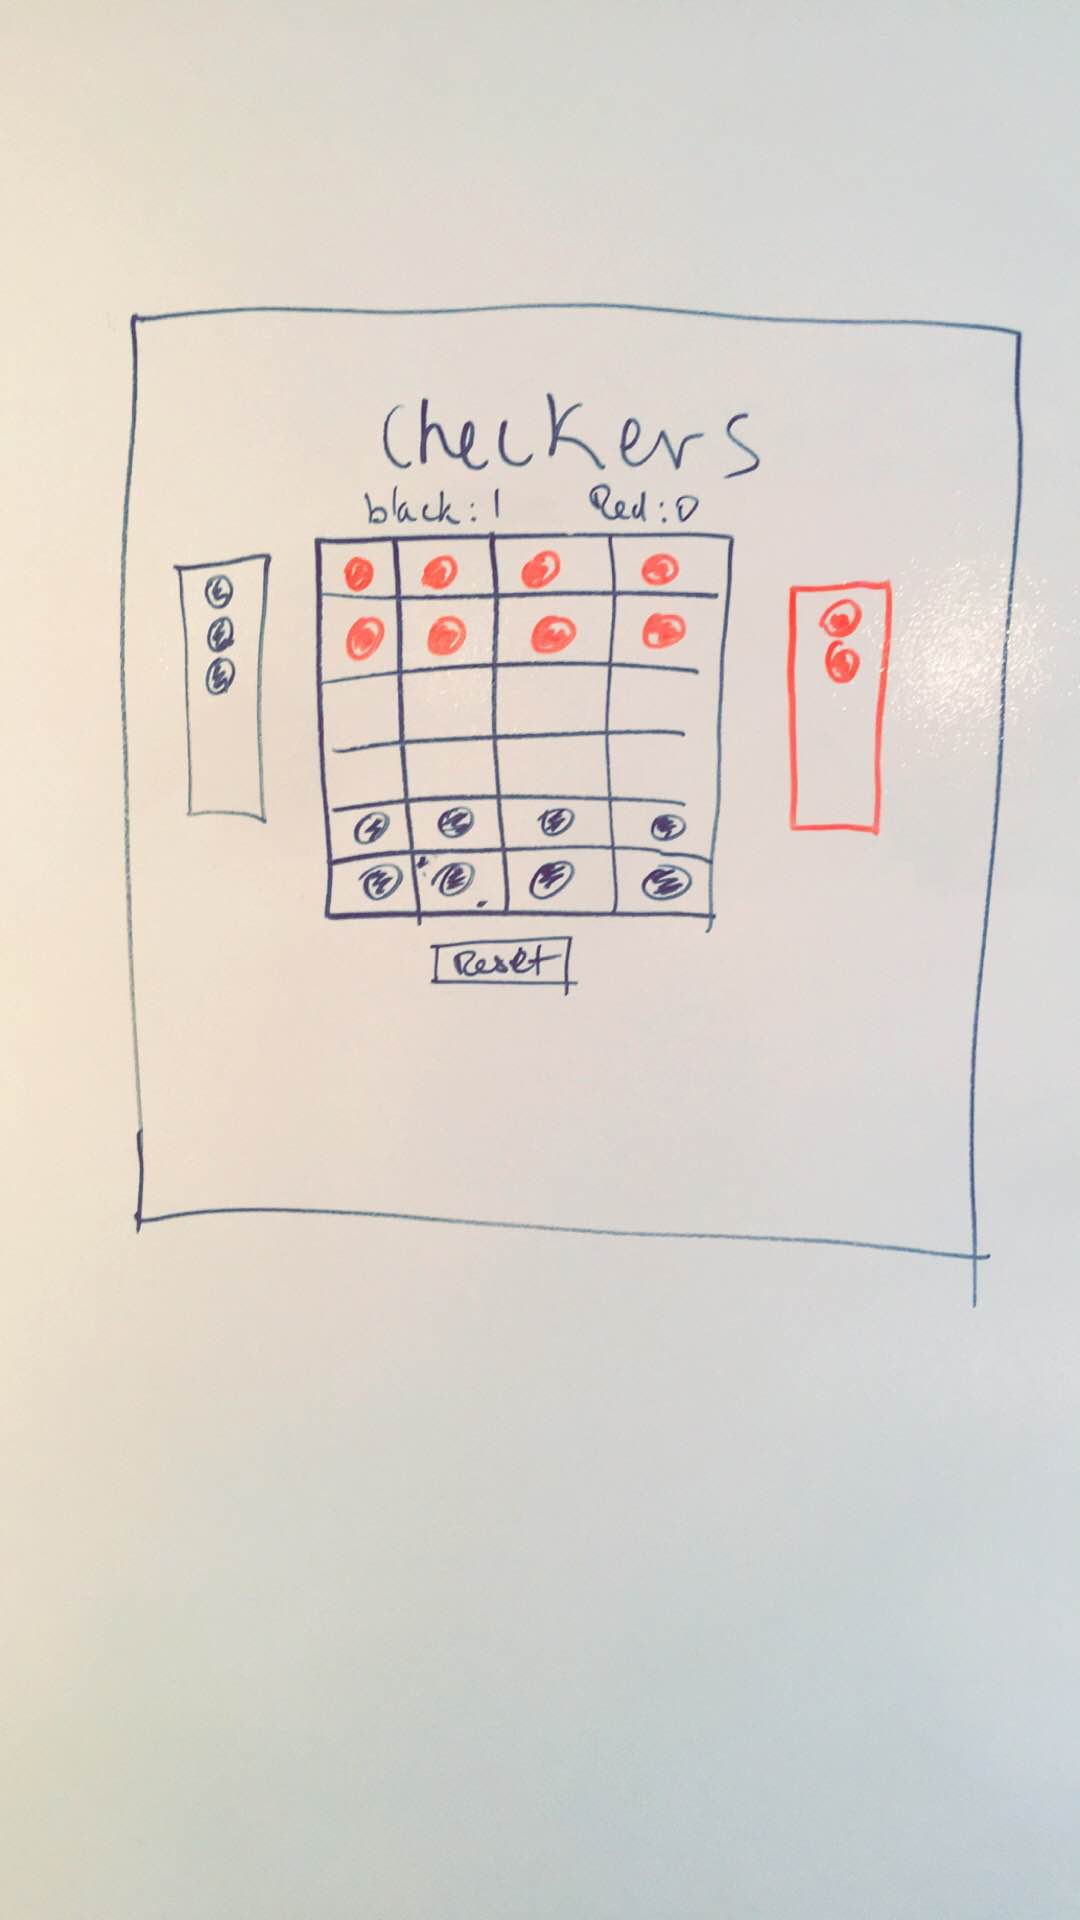 Checkers
black: 1 Red: 0
Reset